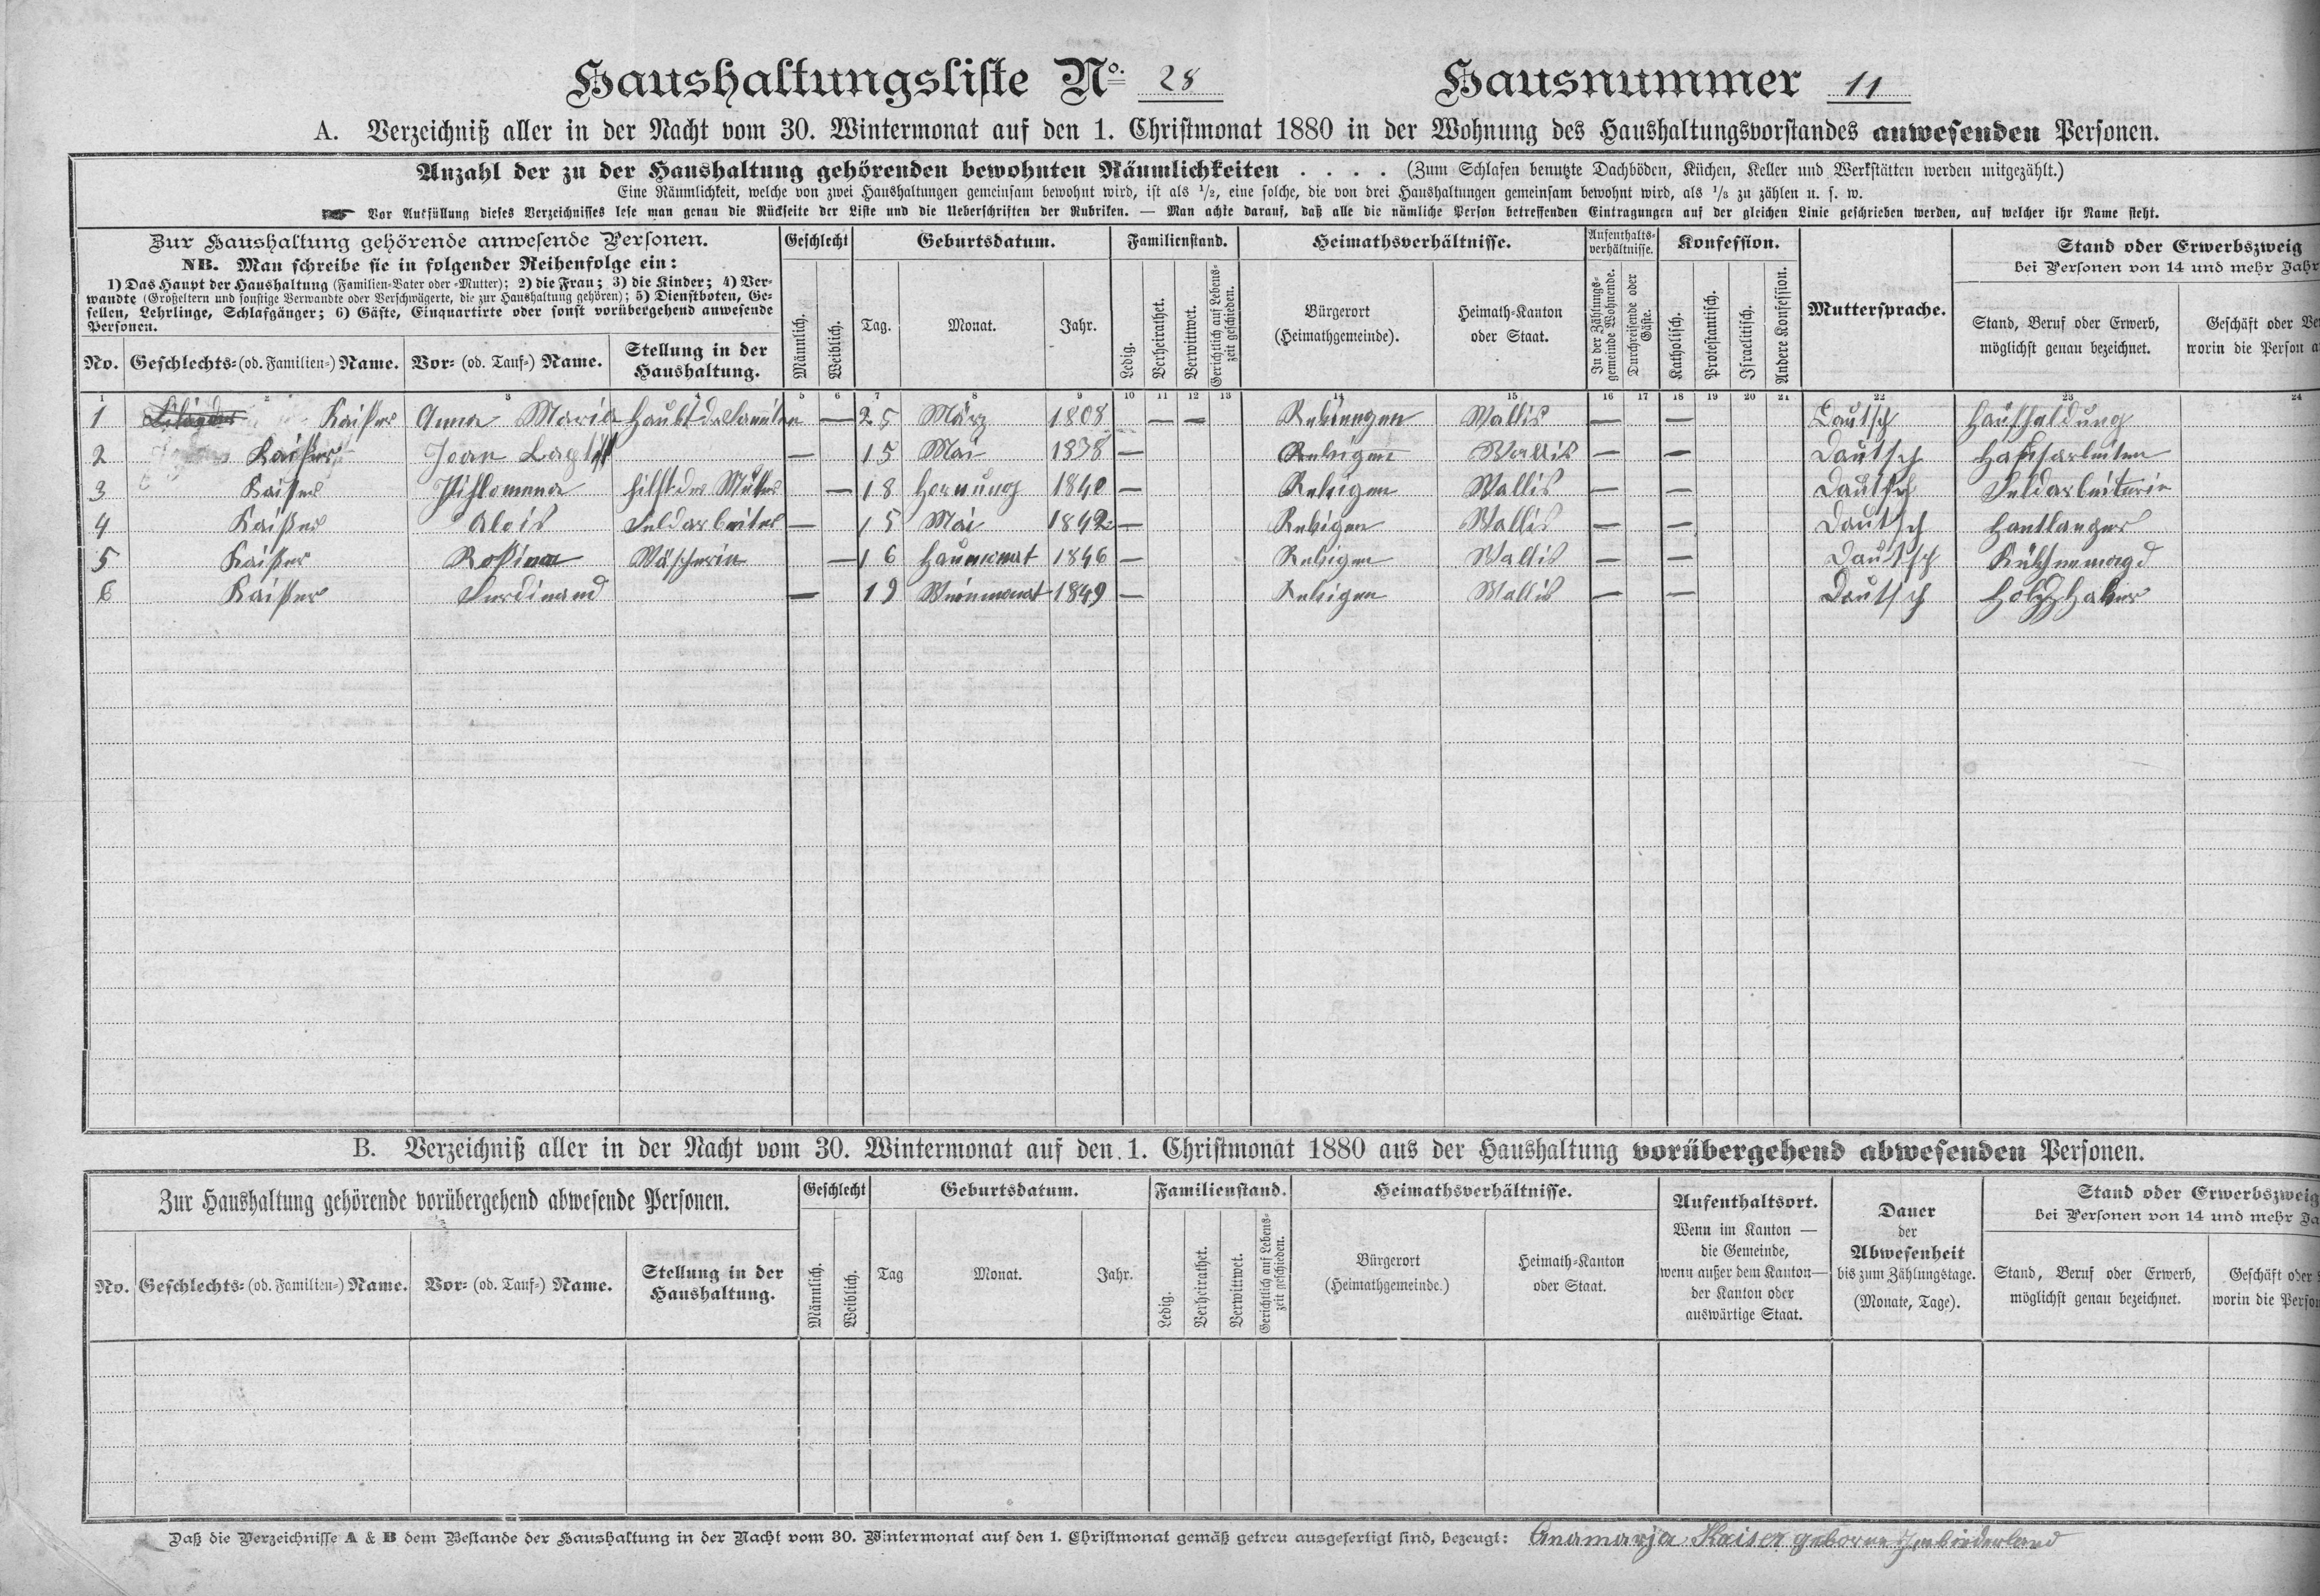 Haushaltungsliste No. 28 Hausnummer 11
A. Verzeichniß aller in der Nacht vom 30. Wintermonat auf den 1. Christmonat 1880 in der Wohnung des Haushaltungsvorstandes anwesenden Personen.
Anzahl der zu der Haushaltung gehörenden bewohnten Räumlichkeiten . . . . (Zum Schlafen benutzte Dachböden, Küchen, Keller und Werkstätten werden mitgezählt.)
Eine Räumlichkeit, welche von zwei Haushaltungen gemeinsam bewohnt wird, ist als 1/2, eine solche, die von drei Haushaltungen gemeinsam bewohnt wird, als 1/3 zu zählen u. s. w.
Vor Ausfüllung dieses Verzeichnisses lese man genau die Rückseite der Liste und die Ueberschriften der Rubriken. — Man achte darauf, daß alle die nämliche Person betreffenden Eintragungen auf der gleichen Linie geschrieben werden, auf welcher ihr Name steht.
Zur Haushaltung gehörende anwesende Personen.
NB. Man schreibe sie in folgender Reihenfolge ein:
1) Das Haupt der Haushaltung (Familien-Vater oder -Mutter); 2) die Frau; 3) die Kinder; 4) Ver-
wandte (Großeltern und sonstige Verwandte oder Verschwägerte, die zur Haushaltung gehören); 5) Dienstboten, Ge-
sellen, Lehrlinge, Schlafgänger; 6) Gäste, Einquartirte oder sonst vorübergehend anwesende
Personen.
No. Geschlechts- (od. Familien-) Name. Vor- (od. Tauf-) Name. Stellung in der
Haushaltung.
Geschlecht
Männlich. Weiblich.
Geburtsdatum.
Tag. Monat. Jahr.
Familienstand.
Ledig. Verheirathet. Verwittwet. Gerichtlich auf Lebens-
zeit geschieden.
Heimathsverhältnisse.
Bürgerort
(Heimathgemeinde).
Heimath-Kanton
oder Staat.
Aufenthalts-
verhältnisse.
In der Zählungs-
gemeinde Wohnende.
Durchreisende oder
Gäste.
Konfession.
Katholisch. Protestantisch. Israelitisch. Andere Konfession.
Muttersprache.
Stand oder Erwerbszweig
bei Personen von 14 und mehr Jahr
Stand, Beruf oder Erwerb,
möglichst genau bezeichnet.
Geschäft oder
worin die Person
1 2 3 4 5 6 7 8 9 10 11 12 13 14 15 16 17 18 19 20 21 22 23 24
1 Kaißer Anna Maria — 25 März 1808 — — Wallis — — Dautsch Haushaldung
2 Kaißer Joan — 15 Mai 1838 — Rebigen Wallis — — Dautsch
3 Kaißer Philomena hilft der Muter — 18 Hornung 1840 — Rebigen Wallis — — Dautsch Feldarbeiterin
4 Kaißer Alois Feldarbeiter — 15 Mai 1842 — Rebigen Wallis — — Dautsch Hantlanger
5 Kaißer Roßina Wäscherin — 16 Haumonat 1846 — Rebigen Wallis — — Dautsch Küchenmagd
6 Kaißer Ferdinand — 19 Weinmonat 1849 — Rebigen Wallis — — Dautsch Holzhaker
B. Verzeichniß aller in der Nacht vom 30. Wintermonat auf den 1. Christmonat 1880 aus der Haushaltung vorübergehend abwesenden Personen.
Zur Haushaltung gehörende vorübergehend abwesende Personen.
No. Geschlechts- (od. Familien-) Name. Vor- (od. Tauf-) Name. Stellung in der
Haushaltung.
Geschlecht
Männlich. Weiblich.
Geburtsdatum.
Tag Monat. Jahr.
Familienstand.
Ledig. Verheirathet. Verwittwet. Gerichtlich auf Lebens-
zeit geschieden.
Heimathsverhältnisse.
Bürgerort
(Heimathgemeinde.)
Heimath-Kanton
oder Staat.
Aufenthaltsort.
Wenn im Kanton —
die Gemeinde,
wenn außer dem Kanton—
der Kanton oder
auswärtige Staat.
Dauer
der
Abwesenheit
bis zum Zählungstage.
(Monate, Tage).
Stand oder Erwerbszweig
bei Personen von 14 und mehr Ja
Stand, Beruf oder Erwerb,
möglichst genau bezeichnet.
Geschäft oder
worin die Person
Daß die Verzeichnisse A & B dem Bestande der Haushaltung in der Nacht vom 30. Wintermonat auf den 1. Christmonat gemäß getreu ausgefertigt sind, bezeugt: Anamarja Kaiser geborne Imboderland